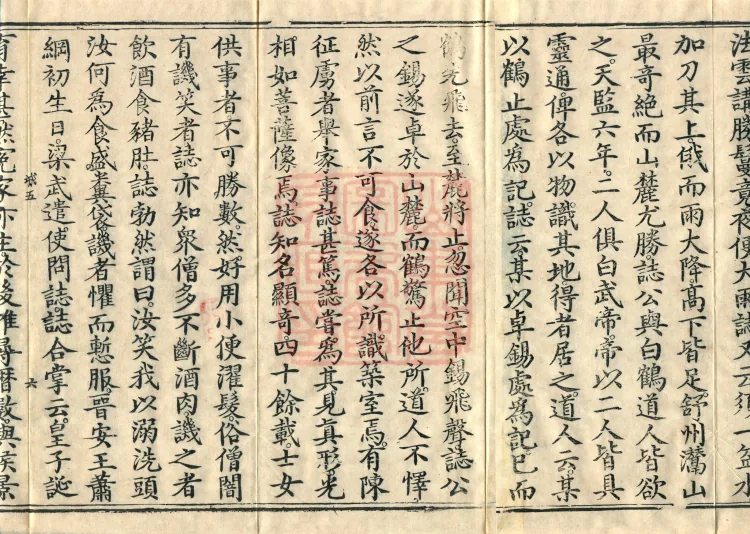 法雲講勝鬘竟夜便大雨誌又云須一盆水
加刀其上俄而雨大降高下皆足舒州灊山
最奇絕而山麓尤勝誌公與白鶴道人皆欲
之天監六年二人俱白武帝帝以二人皆具
靈通俾各以物識其地得者居之道人云某
以鶴止處為記誌云某以卓錫處為記已而
鶴先飛去至麓將止忽聞空中錫飛聲誌公
之錫遂卓於山麓而鶴驚止他所道人不懌
然以前言不可食遂各以所識築室焉有陳
征虜者舉家事誌甚篤誌嘗為其見真形光
相如菩薩像焉誌知名顯奇四十餘載士女
供事者不可勝數然好用小便濯髮俗僧闇
有譏笑者誌亦知眾僧多不斷酒肉譏之者
飲酒食豬肚誌勃然謂曰汝笑我以溺洗頭
汝何為食盛糞袋譏者懼而慙服晉安王蕭
綱初生日梁武遣使問誌誌合掌云皇子誕
城五 六
育幸甚然冤家亦生於後推尋曆數與侯景